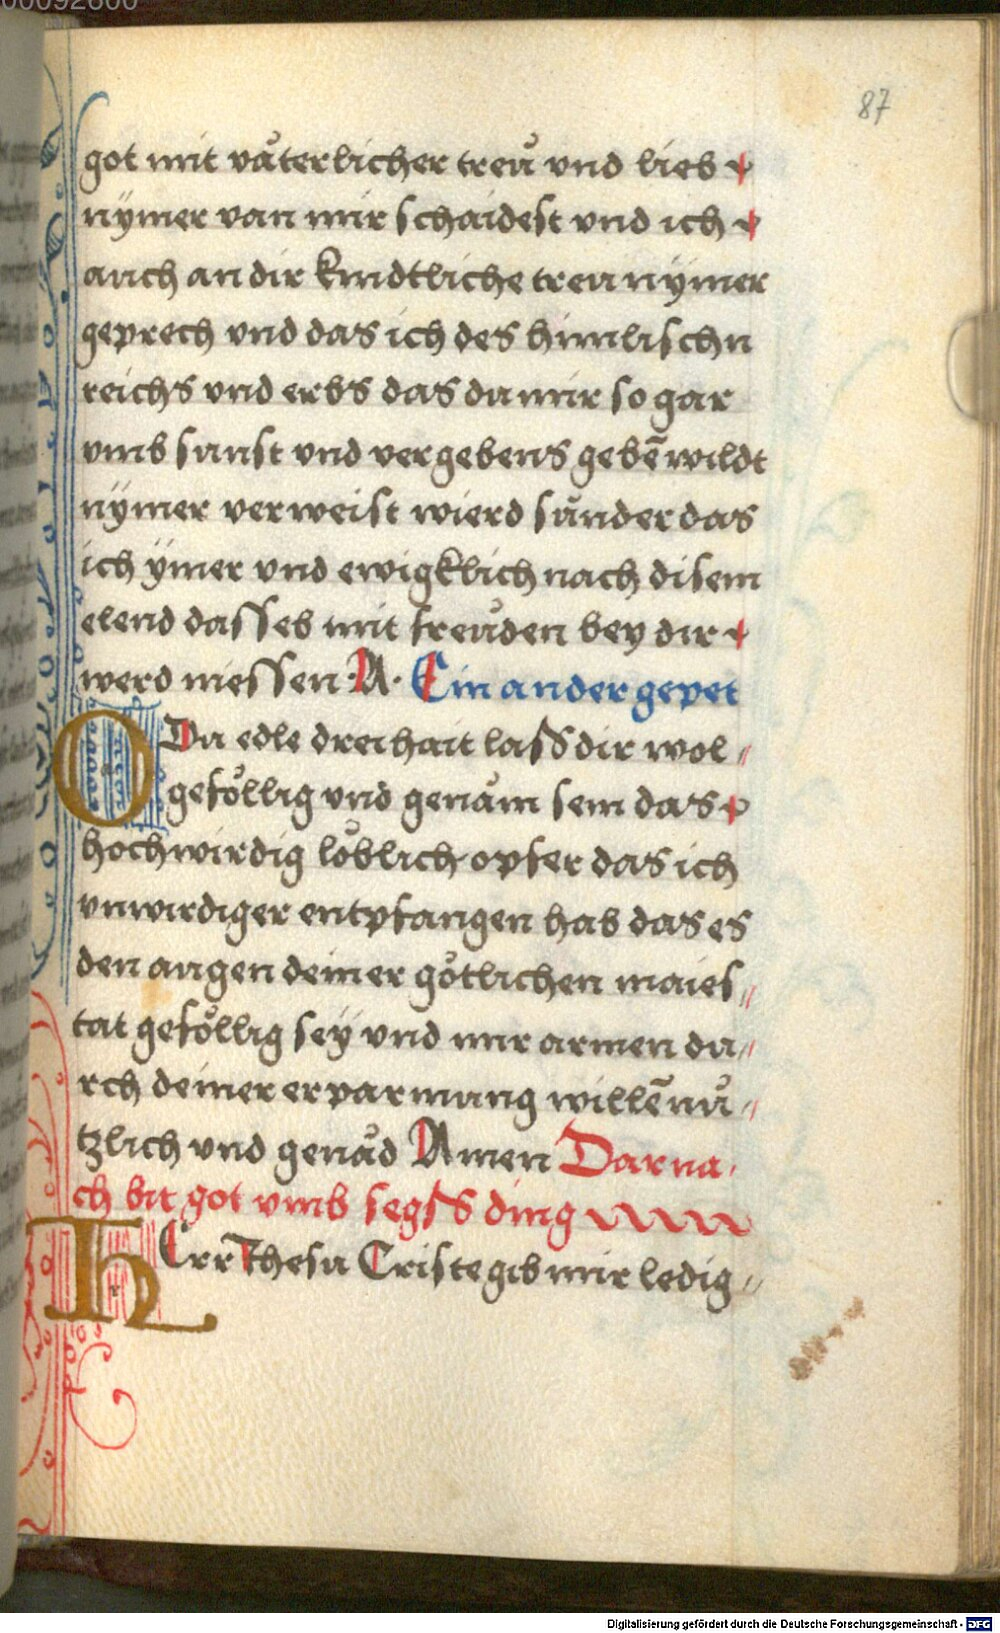 00092600
87
got mit väterlicher treü vnd lieb
nymer van mir schaidest vnd ich
auch an dir kindtliche treu nymer
geprech vnd das ich des himlischn
reichs vnd erbs das du mir so gar
vmb sunst vnd vergebens gebē wildt
nymer verweist wierd sünder das
ich ymer vnd ewigklich nach disem
elend dasseb mit freüden bey dir
werd niessen · A · Ein ander gepet
O Du edle dreihait lass dir wol„
geföllig vnd genäm sein das
hochwirdig löblich opfer das ich
vnwirdiger entpfangen hab das es
den augen deiner götlichen maies„
tat geföllig sey vnd mir armen du„
rch deiner erparmung willē nü„
tzlich vnd genäd Amen Darna„
ch bit got vmb segss ding
HErr Jhesu Criste gib mir ledig„
Digitalisierung gefördert durch die Deutsche Forschungsgemeinschaft - DFG